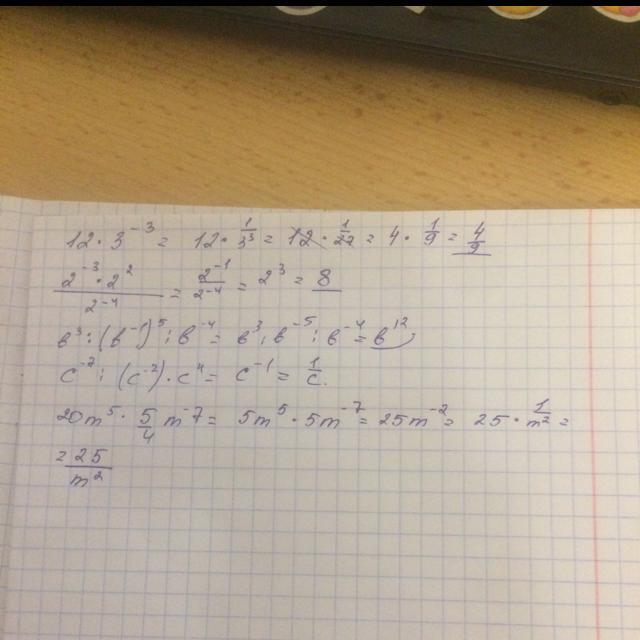 12 · 3⁻³ = 12 · 1/3³ = 12 · 1/27 = 4 · 1/9 = 4/9
2⁻³ · 2² / 2⁻⁴ = 2⁻¹ / 2⁻⁴ = 2³ = 8
в³ : (в⁻¹)⁵ : в⁻⁴ = в³ : в⁻⁵ : в⁻⁴ = в¹²
c⁻⁷ : (c⁻²) · c⁴ = c⁻¹ = 1/c.
20m⁵ · 5/4 m⁻⁷ = 5m⁵ · 5m⁻⁷ = 25m⁻² = 25 · 1/m² =
= 25/m²